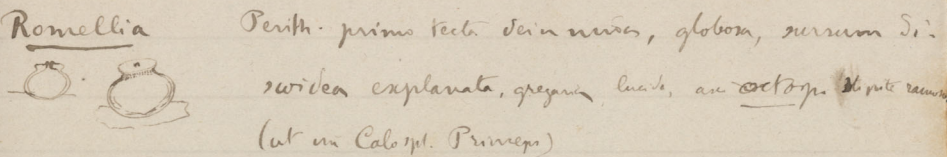 Romellia Perith. primo tecta dein nuda, globosa, sursum di-
scoidea explanata, gregaria, lucida, asci octosp. stipite ramoso
(ut in Calosph. Princeps)